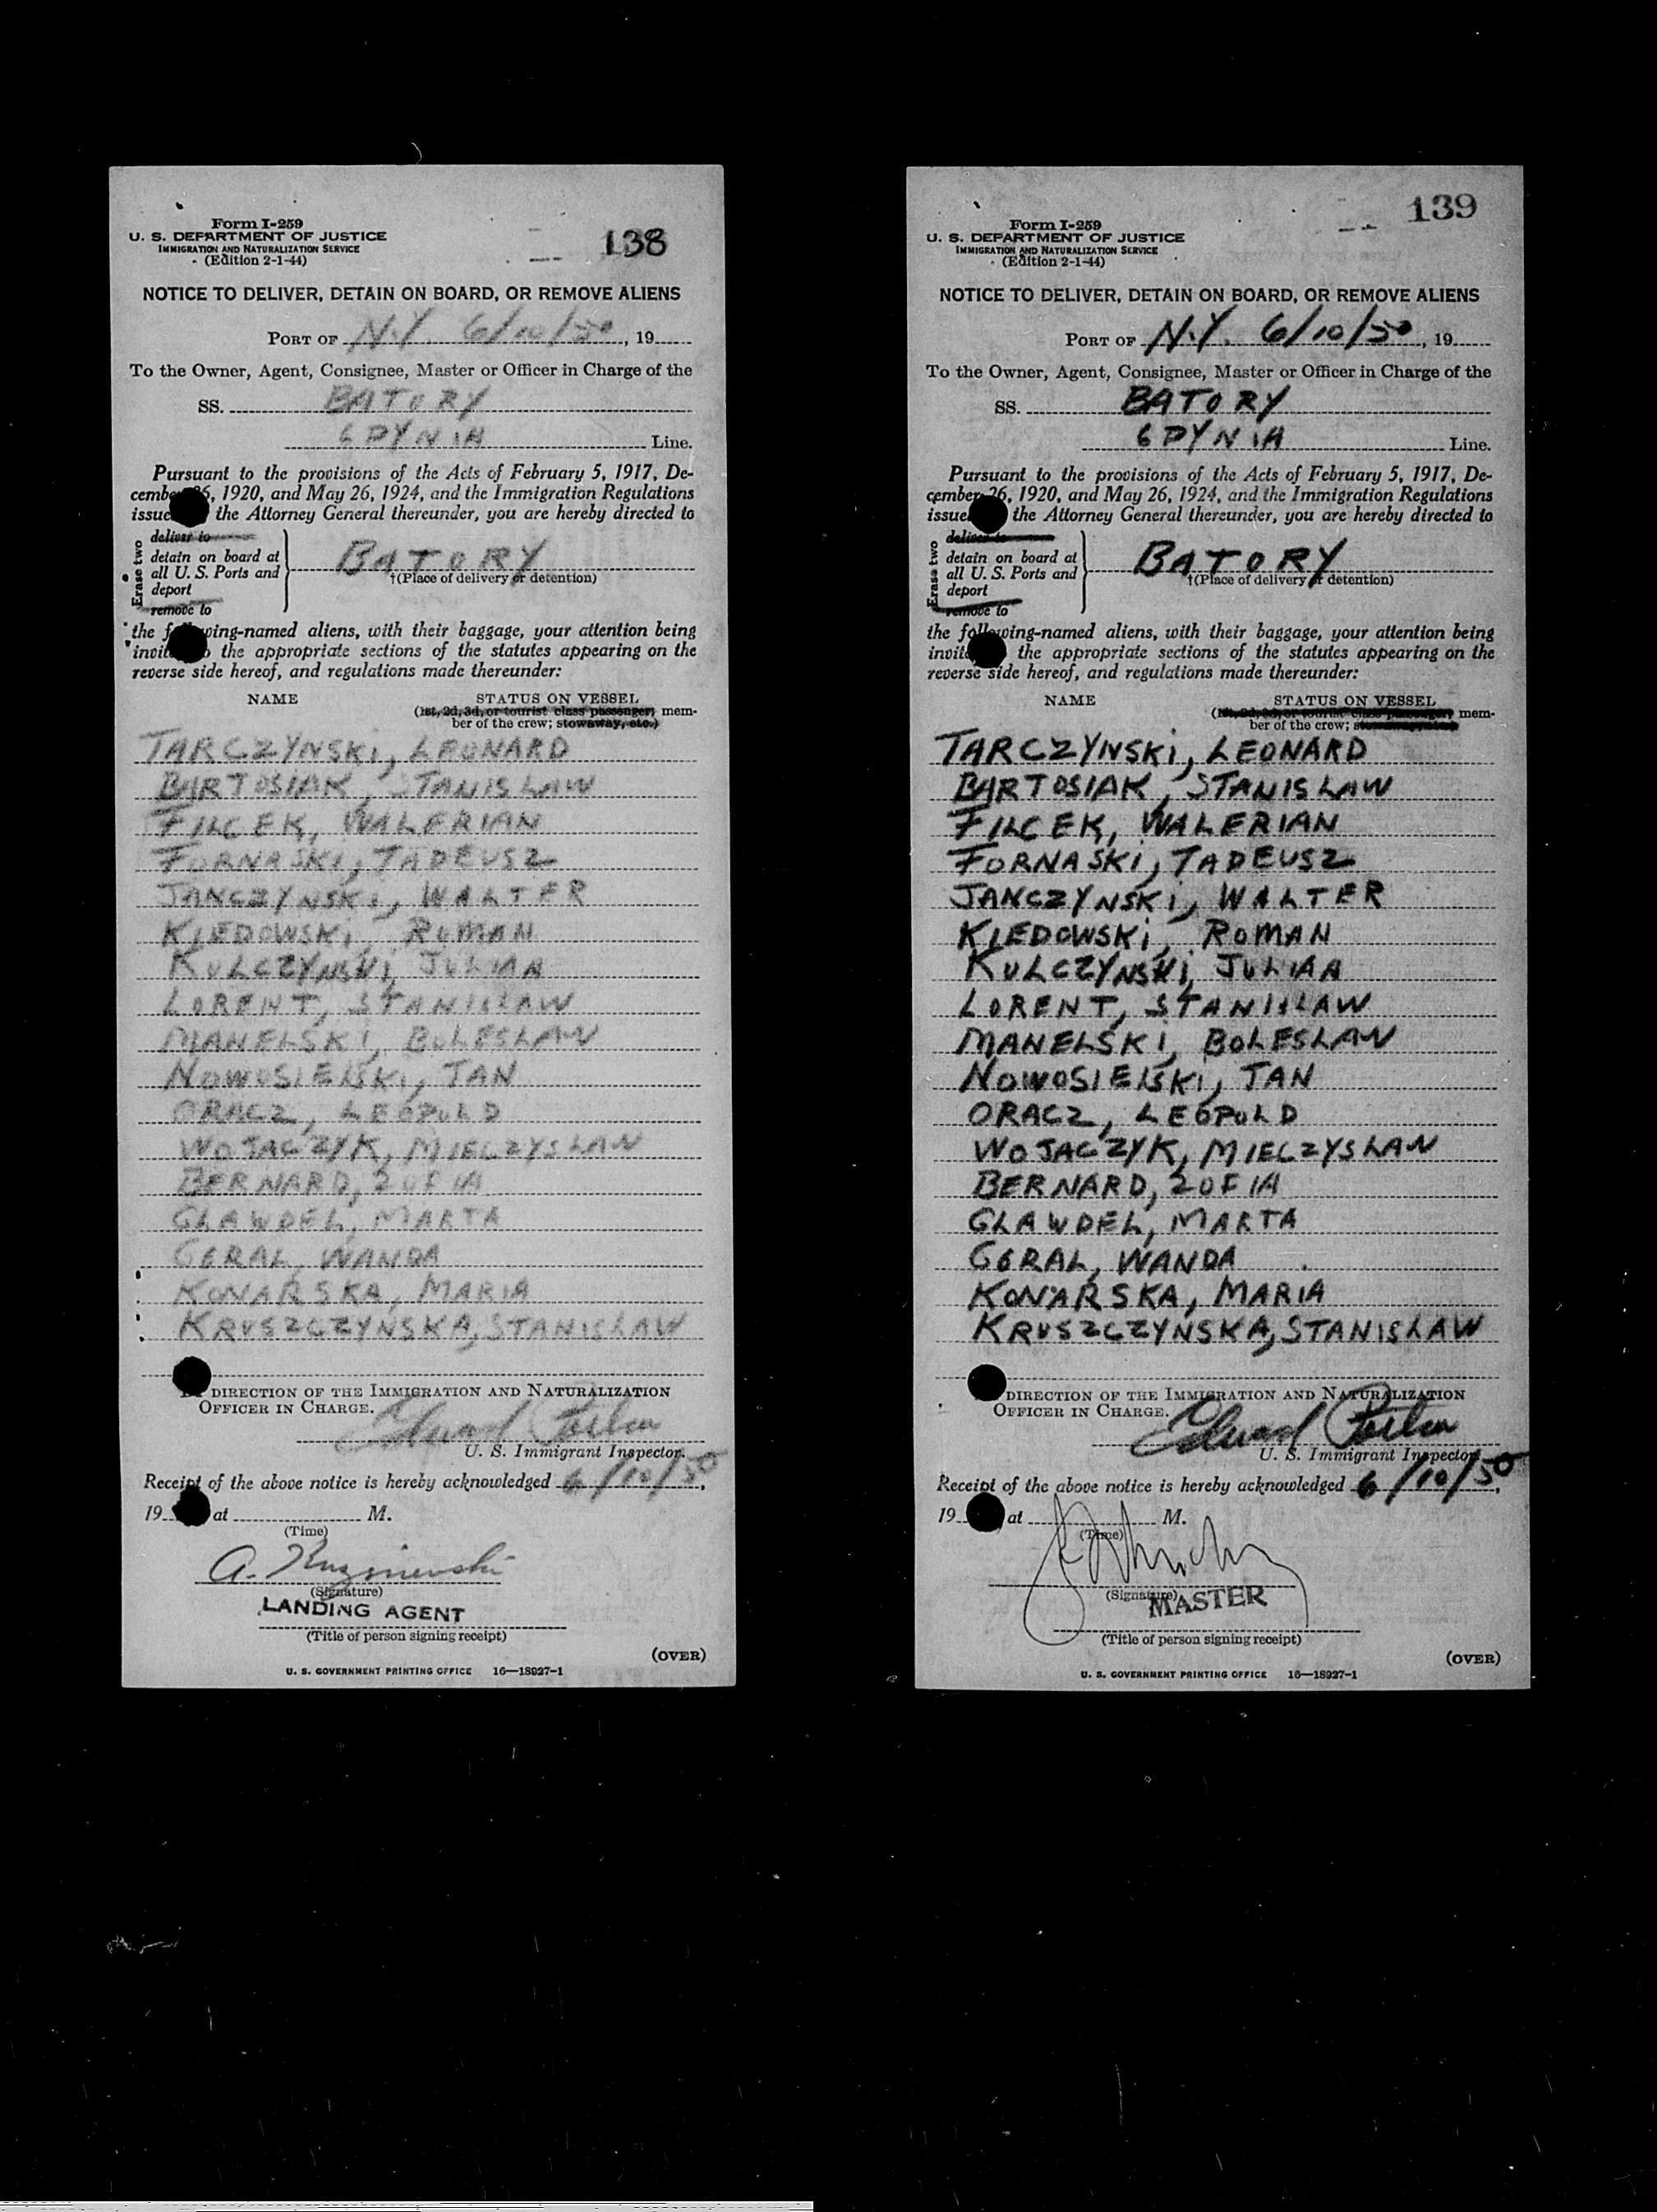 Form I-259
U. S. DEPARTMENT OF JUSTICE
IMMIGRATION AND NATURALIZATION SERVICE
(Edition 2-1-44)
138
NOTICE TO DELIVER, DETAIN ON BOARD, OR REMOVE ALIENS
PORT OF N.Y. 6/10/50, 19
To the Owner, Agent, Consignee, Master or Officer in Charge of the
SS. BATORY
GDYNIA Line.
Pursuant to the provisions of the Acts of February 5, 1917, De-
cember 26, 1920, and May 26, 1924, and the Immigration Regulations
issue the Attorney General thereunder, you are hereby directed to
Erase two
deliver to
detain on board at
all U. S. Ports and
deport
remove to
BATORY
†(Place of delivery or detention)
the following-named aliens, with their baggage, your attention being
invit the appropriate sections of the statutes appearing on the
reverse side hereof, and regulations made thereunder:
NAME STATUS ON VESSEL
(1st, 2d, 3d, or tourist class passenger, mem-
ber of the crew; stowaway, etc.)
TARCZYNSKi, LEONARD
BARTOSIAK, STANISLAW
FILCEK, WALERIAN
FORNASKI, TADEUSZ
JANCZYNSKi, WALTER
KLEDOWSKi, ROMAN
KULCZYNSKI, JULIAA
LORENT, STANISLAW
MANELSKI, BOLESLAW
NOWOSIELSKI, JAN
ORACZ, LEOPOLD
WOJACZYK, MIECZYSLAW
BERNARD, ZOFIA
GLAWDEL, MARTA
GORAL, WANDA
KONARSKA, MARIA
KRUSZCZYNSKA, STANISLAW
DIRECTION OF THE IMMIGRATION AND NATURALIZATION
OFFICER IN CHARGE.
Edward
U. S. Immigrant Inspector.
Receipt of the above notice is hereby acknowledged 6/10/50,
19 at M.
(Time)
A. Kuzniewski
(Signature)
LANDING AGENT
(Title of person signing receipt)
(OVER)
U. S. GOVERNMENT PRINTING OFFICE 16—18927-1
Form I-259
U. S. DEPARTMENT OF JUSTICE
IMMIGRATION AND NATURALIZATION SERVICE
(Edition 2-1-44)
139
NOTICE TO DELIVER, DETAIN ON BOARD, OR REMOVE ALIENS
PORT OF N.Y. 6/10/50, 19
To the Owner, Agent, Consignee, Master or Officer in Charge of the
SS. BATORY
GDYNIA Line.
Pursuant to the provisions of the Acts of February 5, 1917, De-
cember 26, 1920, and May 26, 1924, and the Immigration Regulations
issue the Attorney General thereunder, you are hereby directed to
Erase two
deliver to
detain on board at
all U. S. Ports and
deport
remove to
BATORY
†(Place of delivery or detention)
the following-named aliens, with their baggage, your attention being
invit the appropriate sections of the statutes appearing on the
reverse side hereof, and regulations made thereunder:
NAME STATUS ON VESSEL
(1st, 2d, 3d, or tourist class passenger, mem-
ber of the crew;
TARCZYNSKi, LEONARD
BARTOSIAK, STANISLAW
FILCEK, WALERIAN
FORNASKI, TADEUSZ
JANCZYNSKi, WALTER
KLEDOWSKi, ROMAN
KULCZYNSKI, JULIAA
LORENT, STANISLAW
MANELSKI, BOLESLAW
NOWOSIELSKI, JAN
ORACZ, LEOPOLD
WOJACZYK, MIECZYSLAW
BERNARD, ZOFIA
GLAWDEL, MARTA
GORAL, WANDA
KONARSKA, MARIA
KRUSZCZYNSKA, STANISLAW
DIRECTION OF THE IMMIGRATION AND NATURALIZATION
OFFICER IN CHARGE.
Edward
U. S. Immigrant Inspector
Receipt of the above notice is hereby acknowledged 6/10/50,
19 at M.
(Time)
(Signature)
MASTER
(Title of person signing receipt)
(OVER)
U. S. GOVERNMENT PRINTING OFFICE 16—18927-1